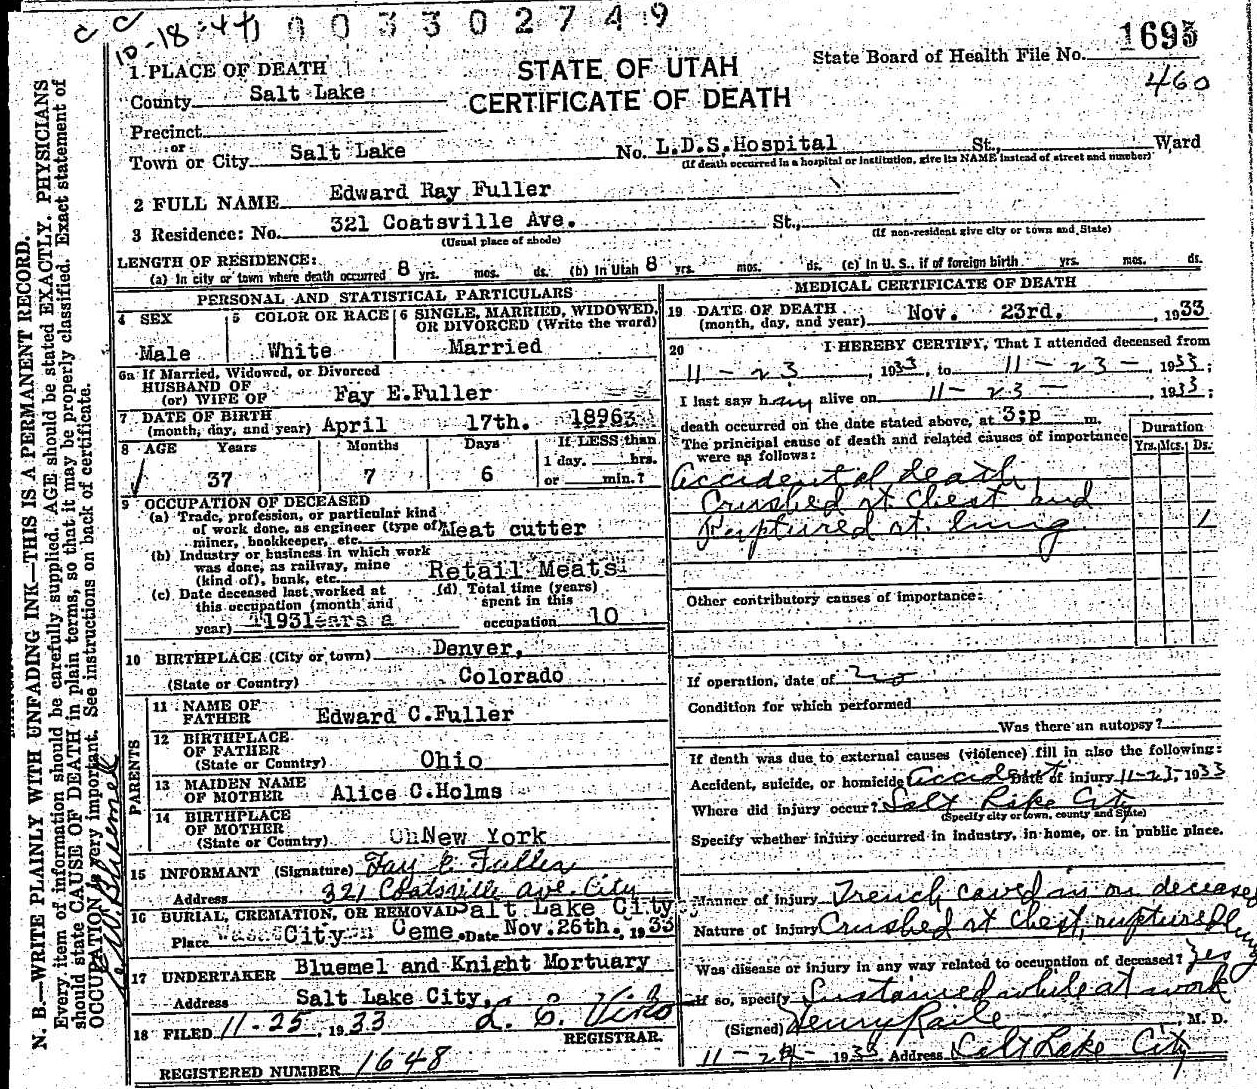 C C
10-18-44
0 0 3 3 0 2 7 4 9
1695
State Board of Health File No.
460
STATE OF UTAH
CERTIFICATE OF DEATH
1. PLACE OF DEATH
County Salt Lake
Precinct
or
Town or City Salt Lake No. L.D.S.Hospital St., Ward
(If death occurred in a hospital or institution, give its NAME instead of street and number)
2 FULL NAME Edward Ray Fuller
3 Residence: No. 321 Coatsville Ave. St.,
(Usual place of abode) (If non-resident give city or town and State)
LENGTH OF RESIDENCE:
(a) In city or town where death occurred 8 yrs. mos. ds. (b) In Utah 8 yrs. mos. ds. (c) In U. S., if of foreign birth yrs. mos. ds.
PERSONAL AND STATISTICAL PARTICULARS
4 SEX
Male
5 COLOR OR RACE
White
6 SINGLE, MARRIED, WIDOWED, OR DIVORCED (Write the word)
Married
6a If Married, Widowed, or Divorced
HUSBAND OF
(or) WIFE OF Fay E.Fuller
7 DATE OF BIRTH
(month, day, and year) April 17th. 1896
8 AGE Years Months Days If LESS than
37 7 6 1 day. hrs.
or min.?
9 OCCUPATION OF DECEASED
(a) Trade, profession, or particular kind
of work done, as engineer (type of)
miner, bookkeeper, etc. Meat cutter
(b) Industry or business in which work
was done, as railway, mine
(kind of), bank, etc. Retail Meats
(c) Date deceased last worked at
this occupation (month and
year) 1931
(d) Total time (years)
spent in this
occupation 10
10 BIRTHPLACE (City or town) Denver,
(State or Country) Colorado
PARENTS
11 NAME OF
FATHER Edward C.Fuller
12 BIRTHPLACE
OF FATHER
(State or Country) Ohio
13 MAIDEN NAME
OF MOTHER Alice C.Holms
14 BIRTHPLACE
OF MOTHER
(State or Country) New York
15 INFORMANT (Signature) Fay E. Fuller
Address 321 Coatsville ave. City
16 BURIAL, CREMATION, OR REMOVAL Salt Lake City
Place City Ceme. Date Nov.26th., 1933
17 UNDERTAKER Bluemel and Knight Mortuary
Address Salt Lake City,
18 FILED 11-25, 1933
REGISTRAR.
REGISTERED NUMBER 1648
MEDICAL CERTIFICATE OF DEATH
19 DATE OF DEATH
(month, day, and year) Nov. 23rd. , 1933
20 I HEREBY CERTIFY, That I attended deceased from
11-23, 1933, to 11-23-, 1933;
I last saw him alive on 11-23-, 1933;
death occurred on the date stated above, at 3;p m.
The principal cause of death and related causes of importance
were as follows:
Duration
Yrs. Mos. Ds.
Accidental death
Crushed rt chest and
Ruptured rt. lung 1
Other contributory causes of importance:
If operation, date of no
Condition for which performed
Was there an autopsy?
If death was due to external causes (violence) fill in also the following:
Accident, suicide, or homicide? Accident Date of injury 11-23, 1933
Where did injury occur? Salt Lake City
(Specify city or town, county and State)
Specify whether injury occurred in industry, in home, or in public place.
Manner of injury Trench caved in on deceased
Nature of injury Crushed rt chest, ruptured lung
Was disease or injury in any way related to occupation of deceased? Yes
If so, specify Sustained while at work
(Signed) Henry Raile, M. D.
11-24-1933 Address Salt Lake City
N. B.—WRITE PLAINLY WITH UNFADING INK—THIS IS A PERMANENT RECORD.
Every item of information should be carefully supplied. AGE should be stated EXACTLY. PHYSICIANS
should state CAUSE OF DEATH in plain terms, so that it may be properly classified. Exact statement of
OCCUPATION is very important. See instructions on back of certificate.